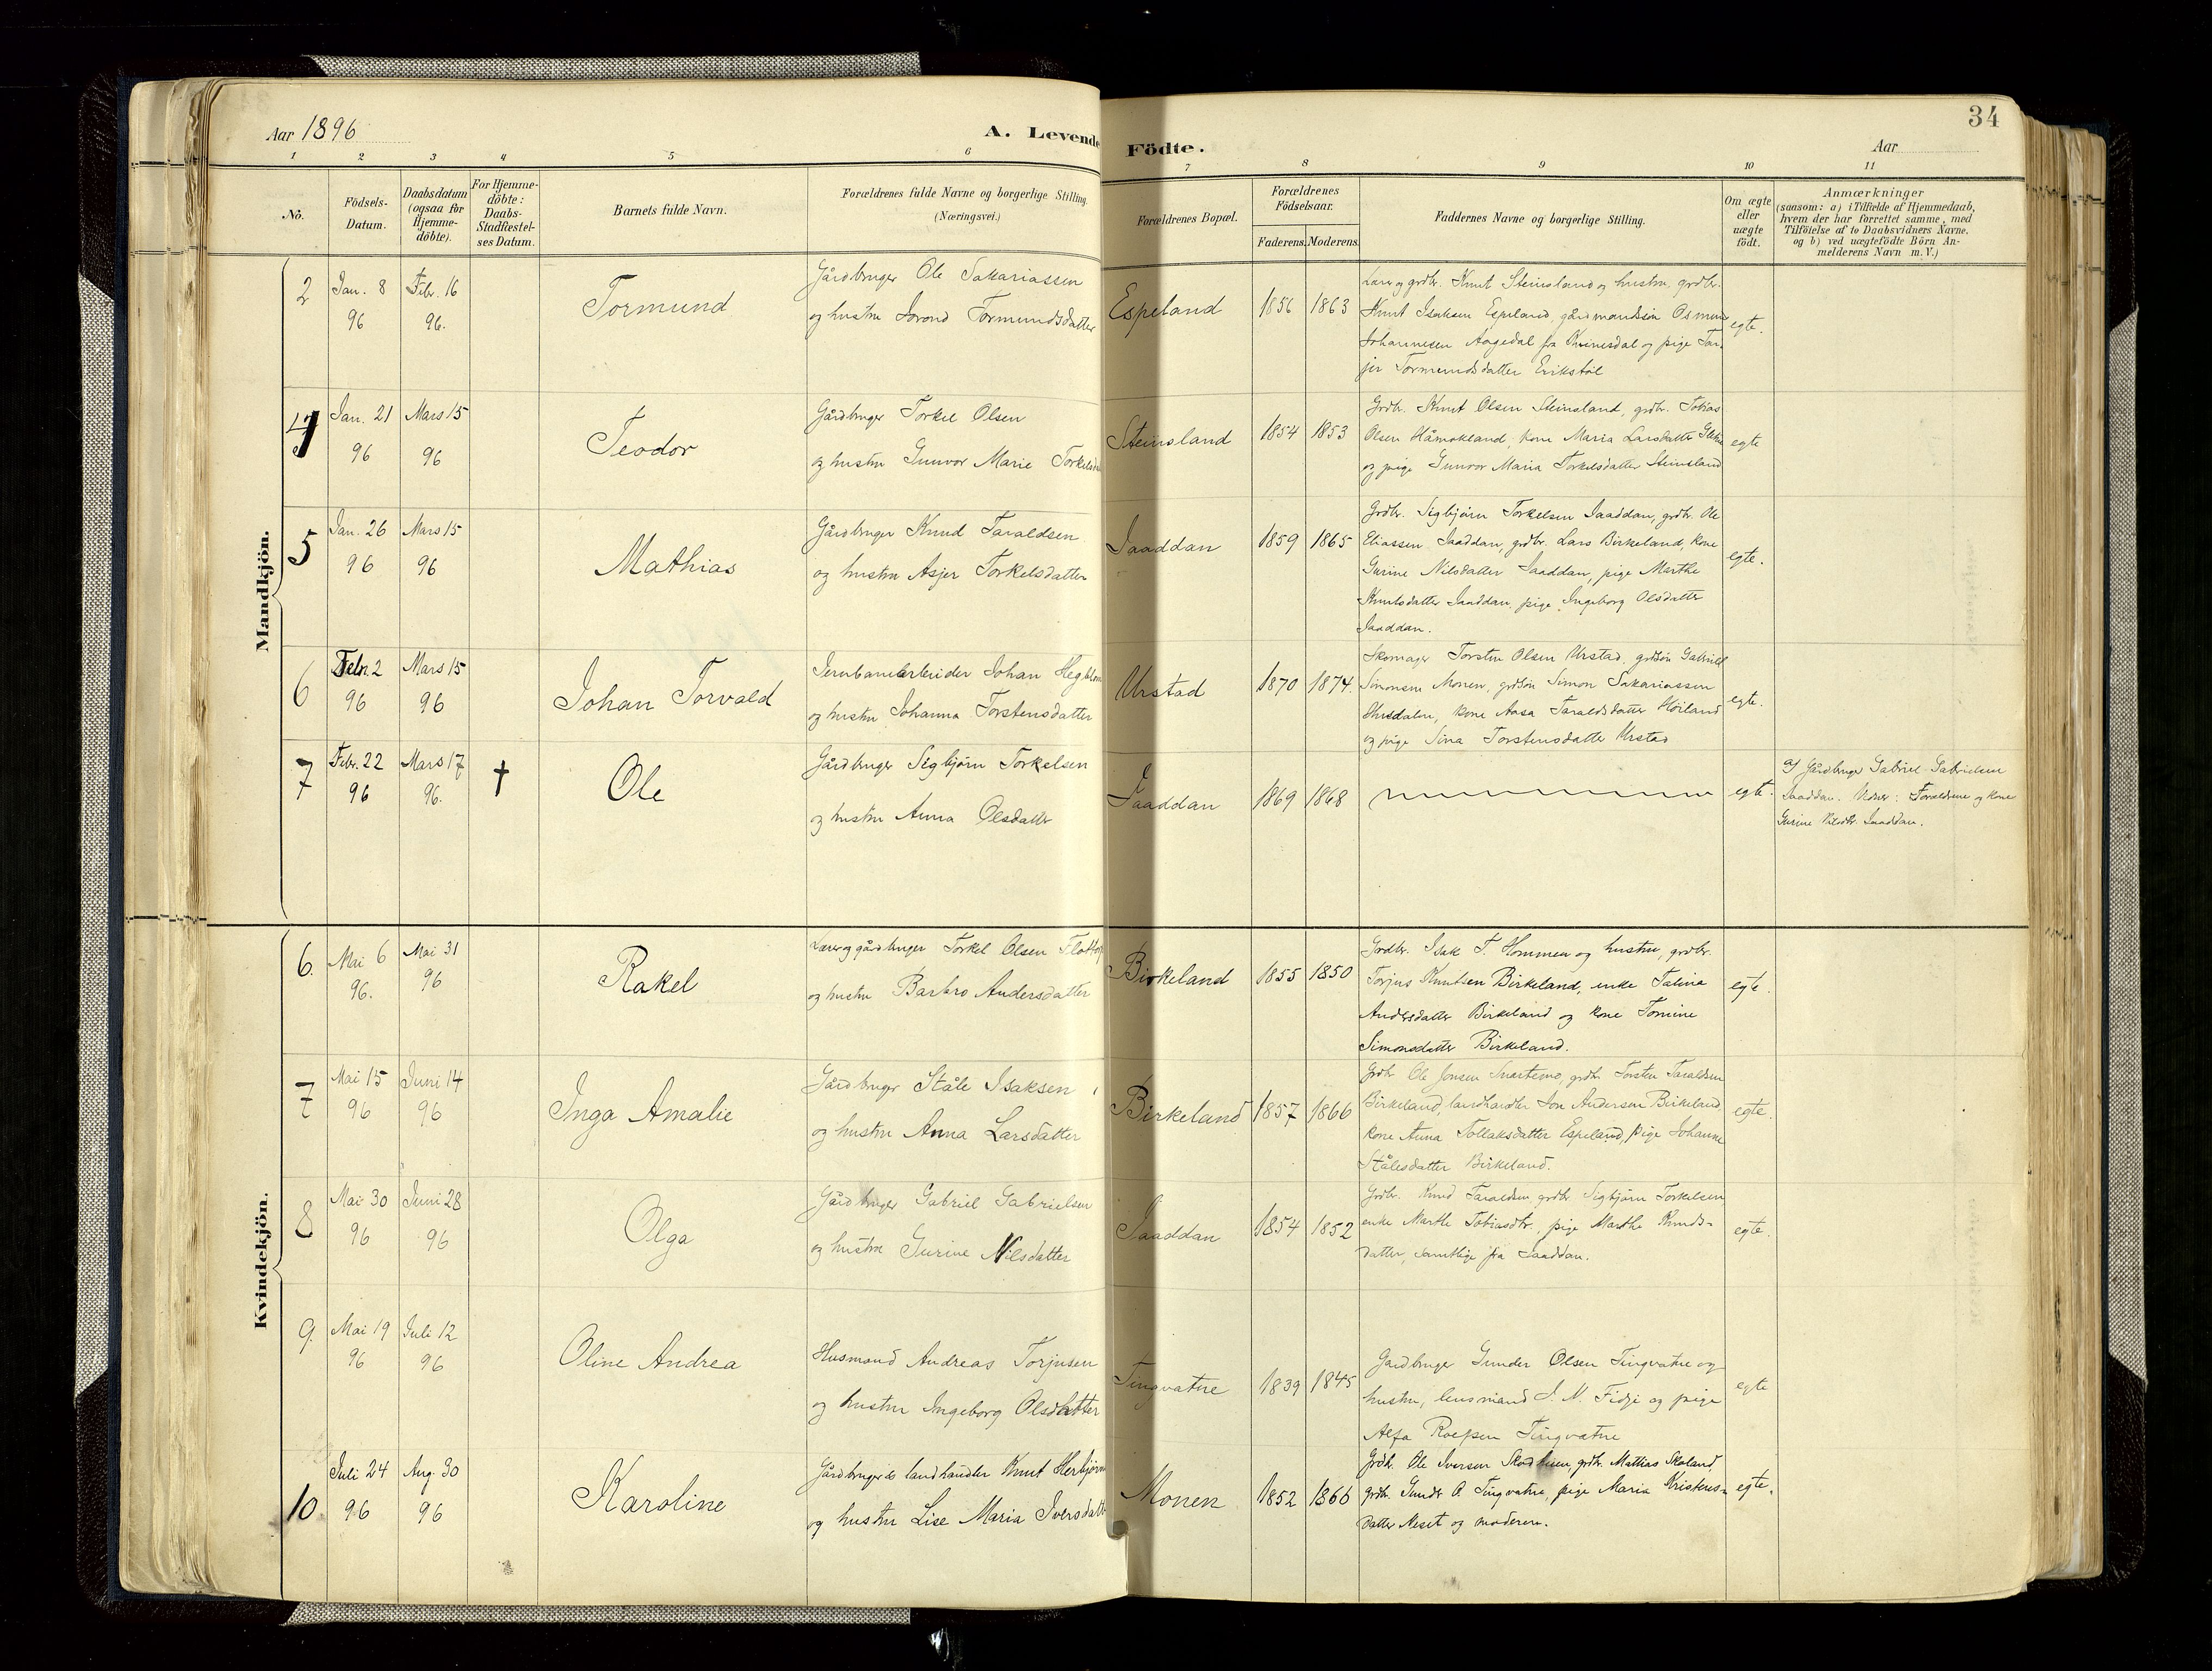 34
Aar 1896
A. Levende Födte.
Aar
1 2 3 4 5 6 7 8 9 10 11
No.
Födsels-Datum.
Daabsdatum (ogsaa for Hjemme-döbte).
For Hjemme-döbte: Daabs-Stadfæstel-ses Datum.
Barnets fulde Navn.
Forældrenes fulde Navne og borgerlige Stilling.
(Næringsvei.)
Forældrenes Bopæl.
Forældrenes Födselsaar.
Faderens. Moderens.
Faddernes Navne og borgerlige Stilling.
Om ægte eller uægte födt.
Anmærkninger
(saasom: a) i Tilfælde af Hjemmedaab,
hvem der har forrettet samme, med
Tilföielse af to Daabsvidners Navne.
og b) ved uægtefödte Börn An-
melderens Navn m. V.)
Mandkjön.
2 Jan. 8 96 Febr. 16 96. Tormund
Gårdbruger Ole Sakariassen
og hustru Jorond Tormundsdatter
Espeland 1856 1863
Lærer og grdbr. Knut Steinsland og hustru, grdbr.
Knut Isaksen Espeland, gårdmandsøn Osmun
Johannesen Aagedal fra Kvinesdal og pige Tar-
jer Tormundsdatter Erikstøl
egte.
4 Jan. 21 96 Mars 15 96 Teodor
Gårdbruger Torkel Olsen
og hustru Gunvor Marie Torkelsda
Steinsland 1854 1853
Grdbr. Knut Olsen Steinsland, grdbr. Tobias
Olsen Håmokland, kone Maria Larsdatter
og pige Gunvor Maria Torkelsdatter Steinsland
egte
5 Jan. 26 96 Mars 15 96 Mathias
Gårdbruger Knud Taraldsen
og hustru Asjer Torkelsdatter
Saaddan 1859 1865
Grdbr. Sigbjørn Torkelsen Saaddan, grdbr. Ole
Eliassen Saaddan, grdbr. Lars Birkeland, kone
Gurine Nilsdatter Saaddan, pige Marthe
Knutsdatter Saaddan, pige Ingeborg Olsdatter
Saaddan.
egte.
6 Febr. 2 96 Mars 15 96 Johan Torvald
Jernbanearbeider Johan Hegblom
og hustru Johanna Torstensdatter
Urstad 1870 1874.
Skomager Torsten Olsen Urstad, grdsøn Gabriel
Simonsen Monen, grdsøn Simon Sakariassen
Husdalen, kone Aasa Taraldsdatter Høiland
og pige Sina Torstensdatter Urstad
egte.
7 Febr. 22 96 Mars 17 96. † Ole
Gårdbruger Sigbjørn Torkelsen
og hustru Anna Olsdatter
Saaddan 1869 1868
egte.
af Gårdbruger Gabriel Gabrielsen
Saaddan. Vidner: Forældrene og kone
Gurine Nilsdtr. Saaddan.
Kvindekjön.
6. Mai 6 96. Mai 31 96 Rakel
Lærer og gårdbruger Torkel Olsen Flottorp
og hustru Barbro Andersdatter
Birkeland 1855 1850
Grdbr. Isak T. Hommen og hustru, grdbr.
Torjus Knutsen Birkeland, enke Talina
Andersdatter Birkeland og kone Tomine
Simonsdatter Birkeland.
egte.
7 Mai 15 96 Juni 14 96 Inga Amalie
Gårdbruger Ståle Isaksen
og hustru Anna Larsdatter
Birkeland 1857 1866
Grdbr. Ole Jonsen Snartemo, grdbr. Torsten Taraldsen
Birkeland, landhandler Jon Andersen Birkeland,
kone Anna Tollaksdatter Espeland, pige Johanne
Stålesdatter Birkeland.
egte.
8 Mai 30 96 Juni 28 96 Olga
Gårdbruger Gabriel Gabrielsen
og hustru Gurine Nilsdatter
Saaddan 1854 1852
Grdbr. Knud Taraldsen, grdbr Sigbjørn Torkelsen
enke Marthe Tobiasdtr., pige Marthe Knuds-
datter, samtlige fra Saaddan.
egte.
9. Mai 19 96 Juli 12 96 Oline Andrea
Husmand Andreas Torjusen
og hustru Ingeborg Olsdatter
Tingvatne 1839 1845
Gardbruger Gunder Olsen Tingvatne og
hustru, lensmand S. N. Fidje og pige
Alfa Roepsen Tingvatne
egte
10 Juli 24 96 Aug. 30 96 Karoline
Gårdbruger & landhandler Knut Herbjørn
og hustru Lise Maria Iversdatt
Monen 1852 1866
Grdbr. Ole Iversen Skodheien, grdbr. Mathias Skoland,
grdbr. Gunder O. Tingvatne, pige Maria Kristens-
datter Neset og moderen.
egte.